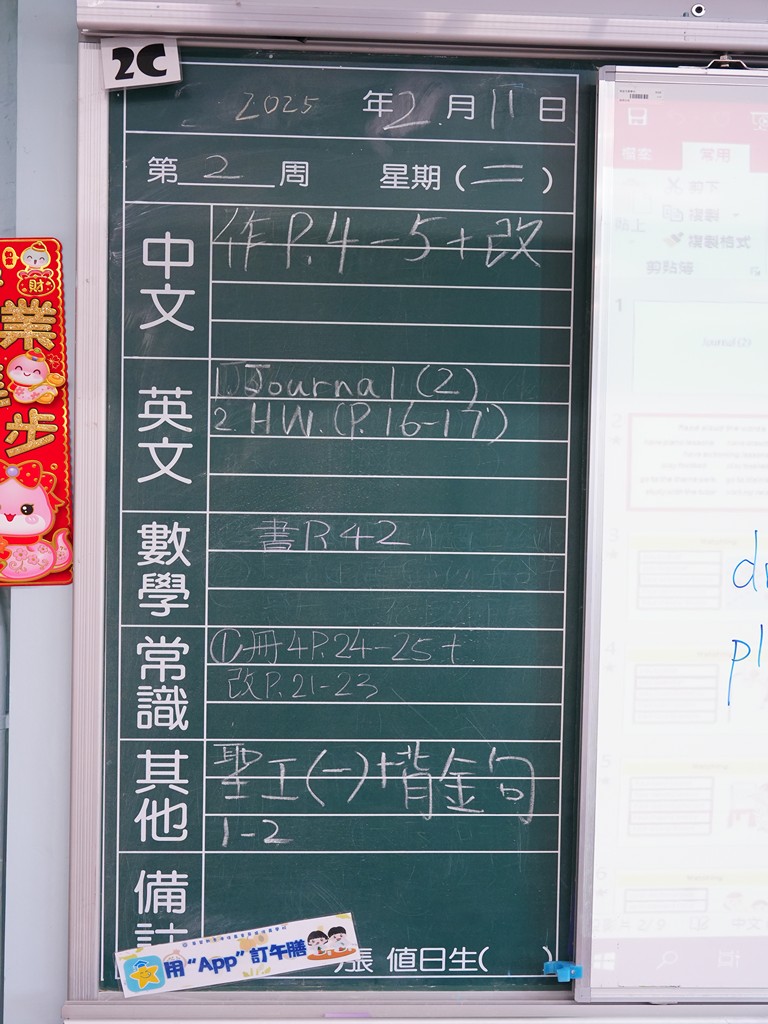 2C
2025 年2月11日
第2周 星期(二)
中文
作P.4-5+改
英文
1. Journal (2)
2. HW. (P.16-17)
數學
書P.42
常識
①冊4P.24-25+
改P.21-23
其他
聖工(一)+背金句
1-2
備註
張 值日生( )
用“App”訂午膳
財
業
步
常用
剪下
貼上
複製
複製格式
剪貼簿
1
2
3
4
5
6
Journal (2)
dr
pl